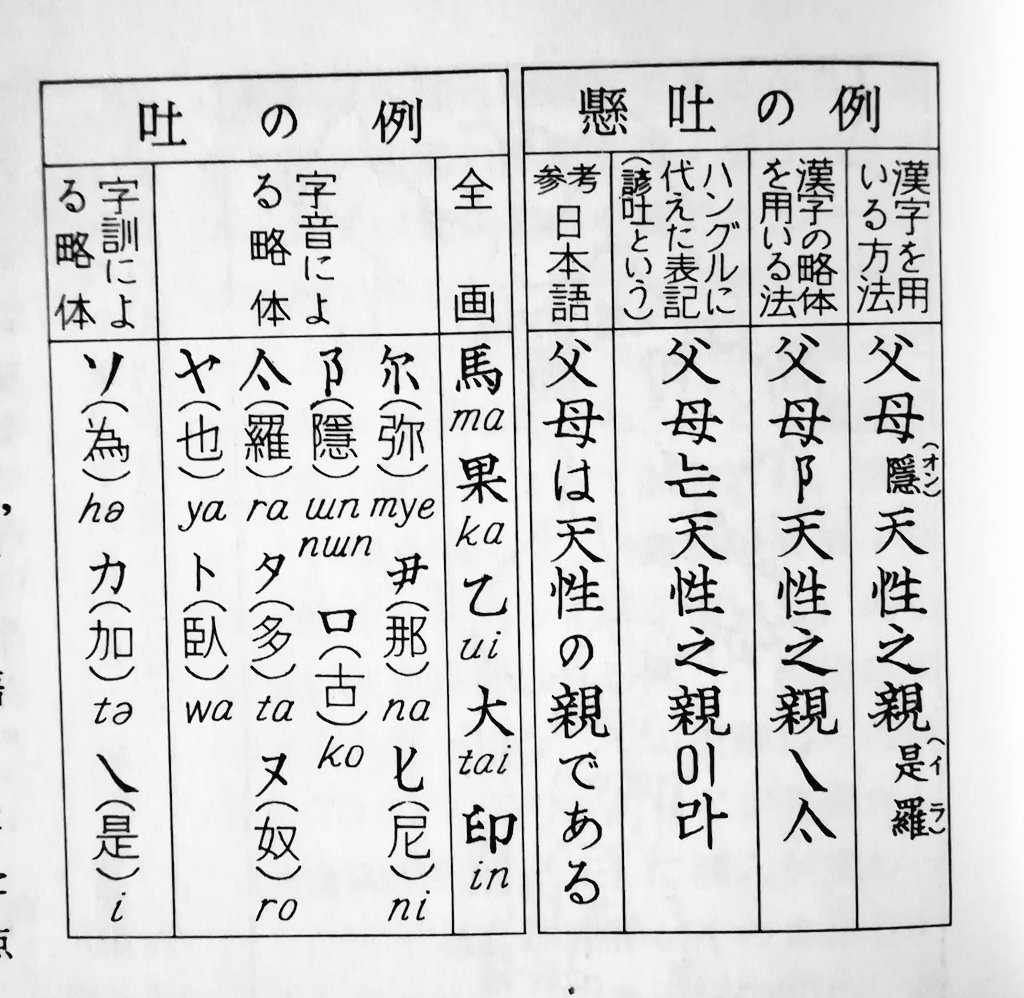 懸吐の例
漢字を用
いる方法
父母隱天性之親是羅
(オン)
(イ ラ)
漢字の略体
を用いる法
父母阝天性之親乀亽
ハングルに
代えた表記
(諺吐という)
父母는天性之親이라
参考
日本語
父母は天性の親である
吐の例
全画
馬
ma
果
ka
乙
ui
大
tai
印
in
字音によ
る略体
尓(弥)
mye
尹(那)
na
匕(尼)
ni
阝(隱)
ɯn
nɯn
口(古)
ko
亽(羅)
ra
タ(多)
ta
ヌ(奴)
ro
ヤ(也)
ya
ト(臥)
wa
字訓によ
る略体
ソ(為)
hə
カ(加)
tə
乀(是)
i